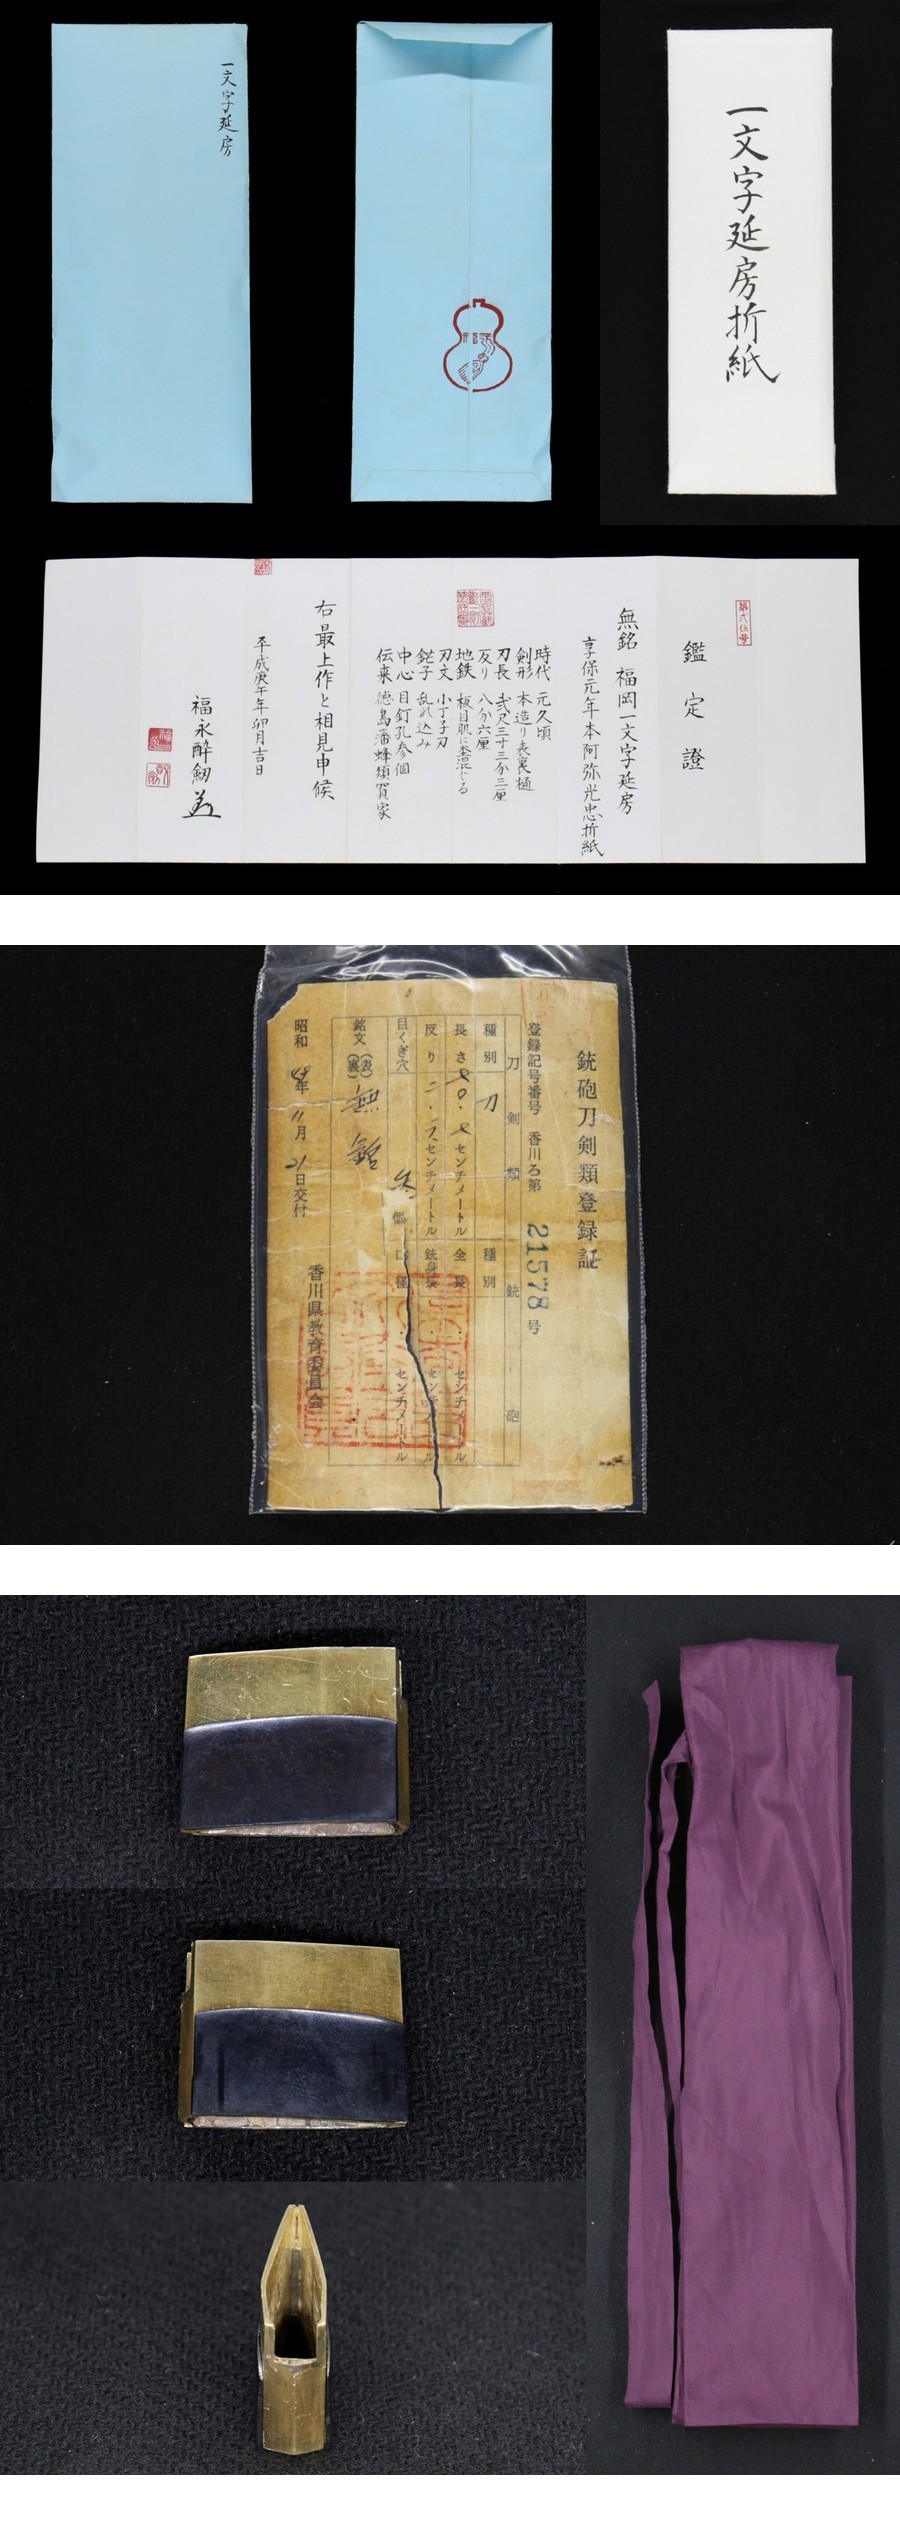 一文字延房
一文字延房折紙
第弐伍号
鑑定證
無銘 福岡一文字延房
享保元年本阿弥光忠折紙
時代 元久頃
剣形 本造り表裏樋
刃長 弐尺三寸三分三厘
反り 八分六厘
地鉄 板目肌に杢混じる
刃文 小丁子刃
鋩子 乱れ込み
中心 目釘孔参個
伝来 徳島藩蜂須賀家
右最上作と相見申候
平成庚午年 卯月吉日
福永酔剱
銃砲刀剣類登録証
登録記号番号 香川ろ第 21578 号
刀剣類 銃砲
種別 刀 種別
長さ センチメートル 全長 . センチメートル
反り 二. センチメートル 銃身長 . センチメートル
目くぎ穴 個 口径 . センチメートル
銘文 (表)(裏) 無銘
昭和 年 11月 21日交付
香川県教育委員会